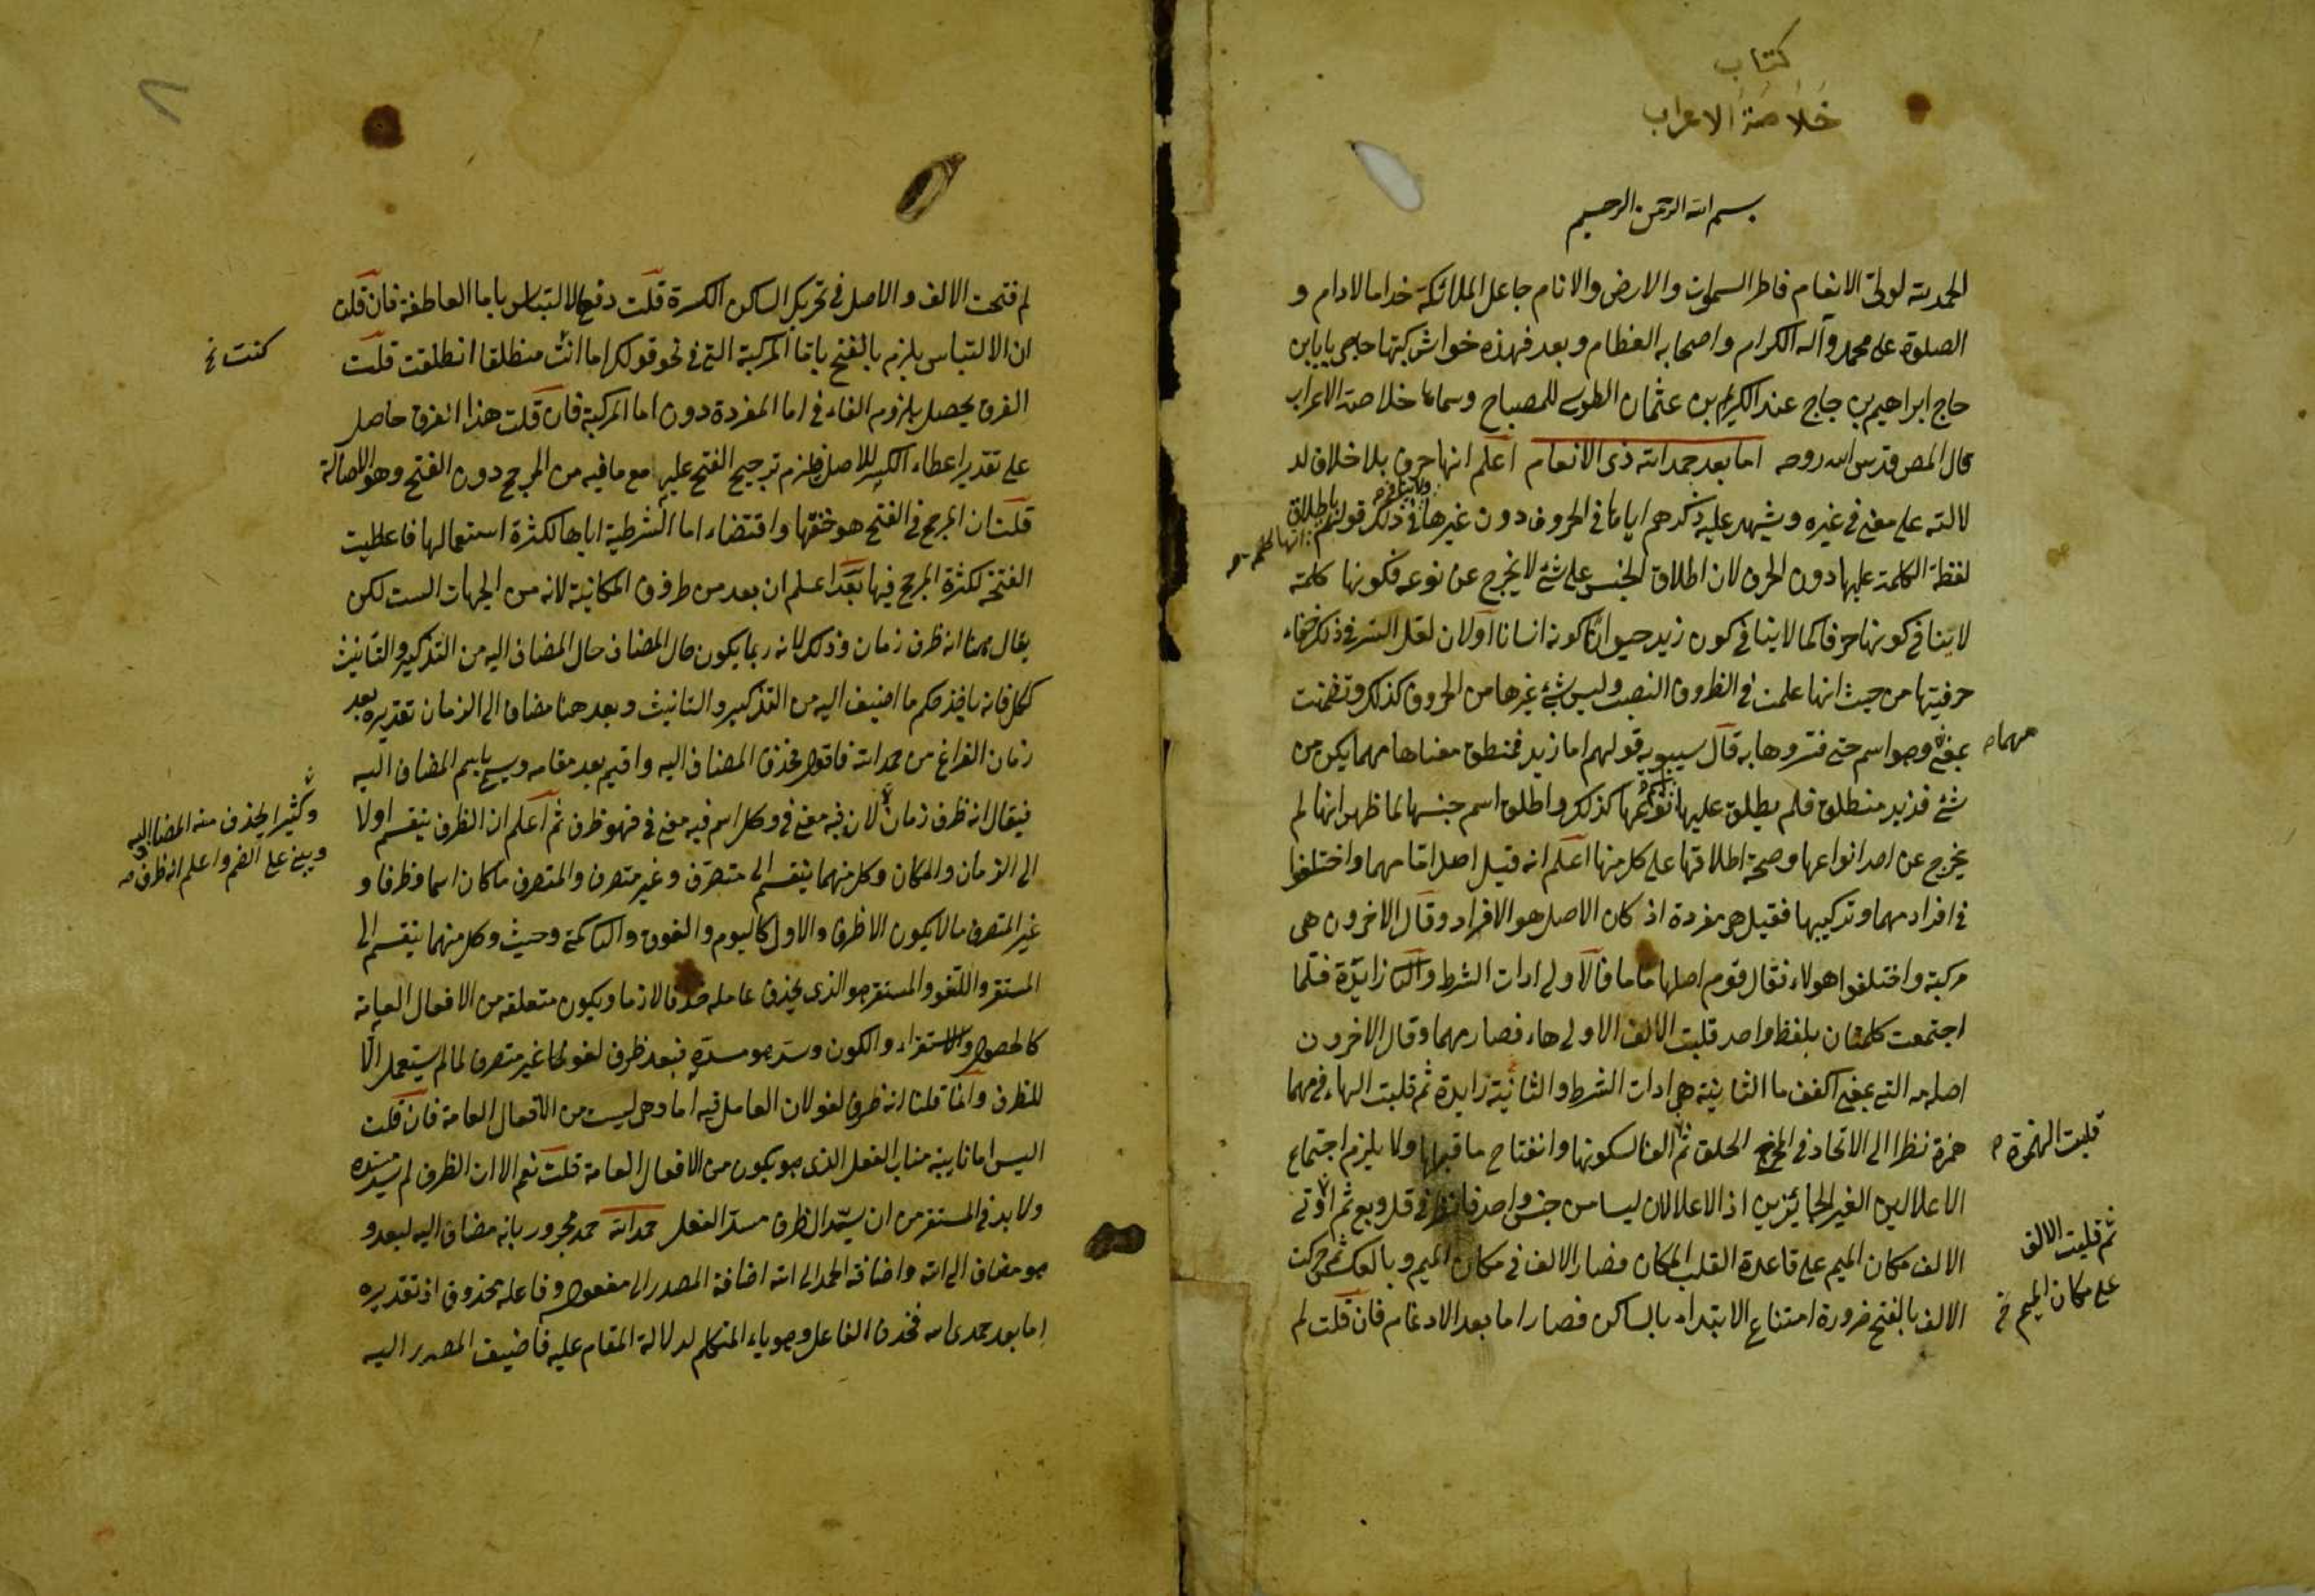 كتاب
خلاصة الاعراب
بسم الله الرحمن الرحيم
الحمد لله لولى الانعام فاطر السموات والارض والانام جاعل الملائكة خداما لادام و
الصلوة على محمد وآله الكرام واصحابه العظام وبعد فهذه حواش كتبها حاجى بابا بن
حاج ابراهيم بن حاج عبد الكريم بن عثمان الطوسى للمصباح وسماها خلاصة الاعراب
قال المص قدس الله روحه اما بعد حمد الله ذى الانعام اعلم انها حرف بلا خلاف لد
لالته على معنى فى غيره ويشهد عليه ذكرهم اياها فى الحروف دون غيرها ولا ينافى ذلك قولهم باطلاق
انها كلمة
لفظة الكلمة عليها دون الحرف لان اطلاق الجنس على شئ لا يخرج عن نوعه فكونها كلمة
لا ينافى كونها حرفا كما لا ينافى كون زيد حيوانا كونه انسانا اولان لعل السر فى ذلك خفاء
حرفيتها من حيث انها علمت فى الظروف النصب وليس شئ غيرها من الحروف كذلك وتضمنت
بمعنى وهو اسم حتى فسروها به قال سيبويه قولهم اما زيد فمنطلق معناها مهما يكن من
مهما صح
شئ فزيد منطلق فلم يطلق عليها نوعها كذلك واطلق اسم جنسها لما ظهر انها لم
يخرج عن احد انواعها وصحة اطلاقها على كل منها اعلم انه قيل اصل اما مهما واختلفوا
فى افراد مهما وتركيبها فقيل هى مفردة اذ كان الاصل هو الافراد وقال الاخرون هى
مركبة واختلفوا هولاء فقال قوم اصلها ماما فالاولى ادات الشرط والثانية زايدة فلما
اجتمعت كلمتان بلفظ واحد قلبت الالف الاولى هاء فصار مهما وقال الاخرون
اصله مه التى بمعنى اكفف ما الثانية هى ادات الشرط والثانية زايدة ثم قلبت الهاء فى مهما
همزة نظرا الى الاتحاد فى المخرج الحلق ثم الفا لسكونها وانفتاح ما قبلها ولا يلزم اجتماع
قلبت الهمزة صح
الاعلالين الغير الجائزين اذ الاعلالان ليسا من جنس واحد فانظر فى قل وبع ثم اوتى
الالف مكان الميم على قاعدة القلب المكان فصار الالف فى مكان الميم وبالعكس ثم حركت
ثم قلبت الالف
على مكان الميم خ
الالف بالفتح ضرورة امتناع الابتداء بالساكن فصار اما بعد الادغام فان قلت لم
لم فتحت الالف والاصل فى تحريك الساكن الكسرة قلت دفع الالتباس باما العاطفة فان قلت
ان الالتباس يلزم بالفتح باما المركبة التى فى نحو قولك اما انت منطلقا انطلقت قلت
كنت خ
الفرق يحصل بلزوم الفاء فى اما المفردة دون اما المركبة فان قلت هذا الفرق حاصل
على تقدير اعطاء الكسر للاصل فلزم ترجيح الفتح عليه مع ما فيه من المرجح دون الفتح وهو الاصالة
قلت ان المرجح فى الفتح هو خفتها واقتضاء اما الشرطية اياها لكثرة استعمالها فاعطيت
الفتحة لكثرة المرجح فيها بعد اعلم ان بعد من ظروف المكانية لانه من الجهات الست لكن
يقال ههنا انه ظرف زمان وذلك لانه ربما يكون حال المضاف حال المضاف اليه من التذكير والتانيث
ككل فانه ياخذ حكم ما اضيف اليه من التذكير والتانيث وبعد هنا مضاف الى الزمان تقديره بعد
زمان الفراغ من حمد الله فاقول فحذف المضاف اليه واقيم بعد مقامه ويسمى باسم المضاف اليه
فيقال انه ظرف زمان لان فيه معنى فى وكل اسم فيه معنى فى فهو ظرف ثم اعلم ان الظرف ينقسم اولا
وكثيرا يحذف منه المضاف اليه
ويبنى على الضم واعلم انه ظرف صح
الى الزمان والمكان وكل منهما ينقسم الى متصرف وغير متصرف والمتصرف ما كان اسما وظرفا و
غير المتصرف ما لا يكون الا ظرفا والاول كاليوم والفوق والثانى كمتى وحيث وكل منهما ينقسم الى
المستقر واللغو والمستقر هو الذى يحذف عامله حذفا لازما ويكون متعلقه من الافعال العامة
كالحصول والاستقراء والكون وسد هو مسده فبعد ظرف لغو لها غير متصرف لما لم يستعمل الا
للظرف وانما قلنا انه ظرف لغو لان العامل فيه اما وهى ليست من الافعال العامة فان قلت
اليس اما نايبة مناب الفعل الذى هو يكون من الافعال العامة قلت نعم الا ان الظرف لم يسد مسده
ولا بد فى المستقر من ان يسد الظرف مسد الفعل حمد الله حمد مجرور بانه مضاف اليه لبعد و
هو مضاف الى الله واضافة الحمد الى الله اضافة المصدر الى مفعوله وفاعله محذوف اذ تقديره
اما بعد حمدى الله فحذف الفاعل وهو ياء المتكلم لدلالة المقام عليه فاضيف المصدر اليه